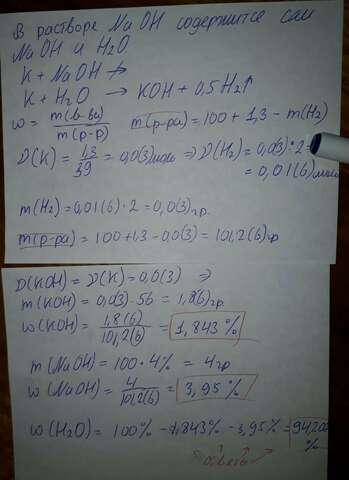 В растворе NaOH содержится сам
NaOH и H2O
K + NaOH ↛
K + H2O → KOH + 0,5H2↑
ω = m(в-ва) / m(р-р) m(р-ра) = 100 + 1,3 - m(H2)
ν(K) = 1,3 / 39 = 0,0(3) моль ⇒ ν(H2) = 0,0(3) : 2 =
= 0,01(6) моль
m(H2) = 0,01(6) · 2 = 0,0(3) гр.
m(р-ра) = 100 + 1,3 - 0,0(3) = 101,2(6) гр
ν(KOH) = ν(K) = 0,0(3) ⇒
m(KOH) = 0,0(3) · 56 = 1,8(6) гр.
ω(KOH) = 1,8(6) / 101,2(6) = 1,843 %
m(NaOH) = 100 · 4% = 4 гр
ω(NaOH) = 4 / 101,2(6) = 3,95 %
ω(H2O) = 100% - 1,843% - 3,95% =
%
ответы